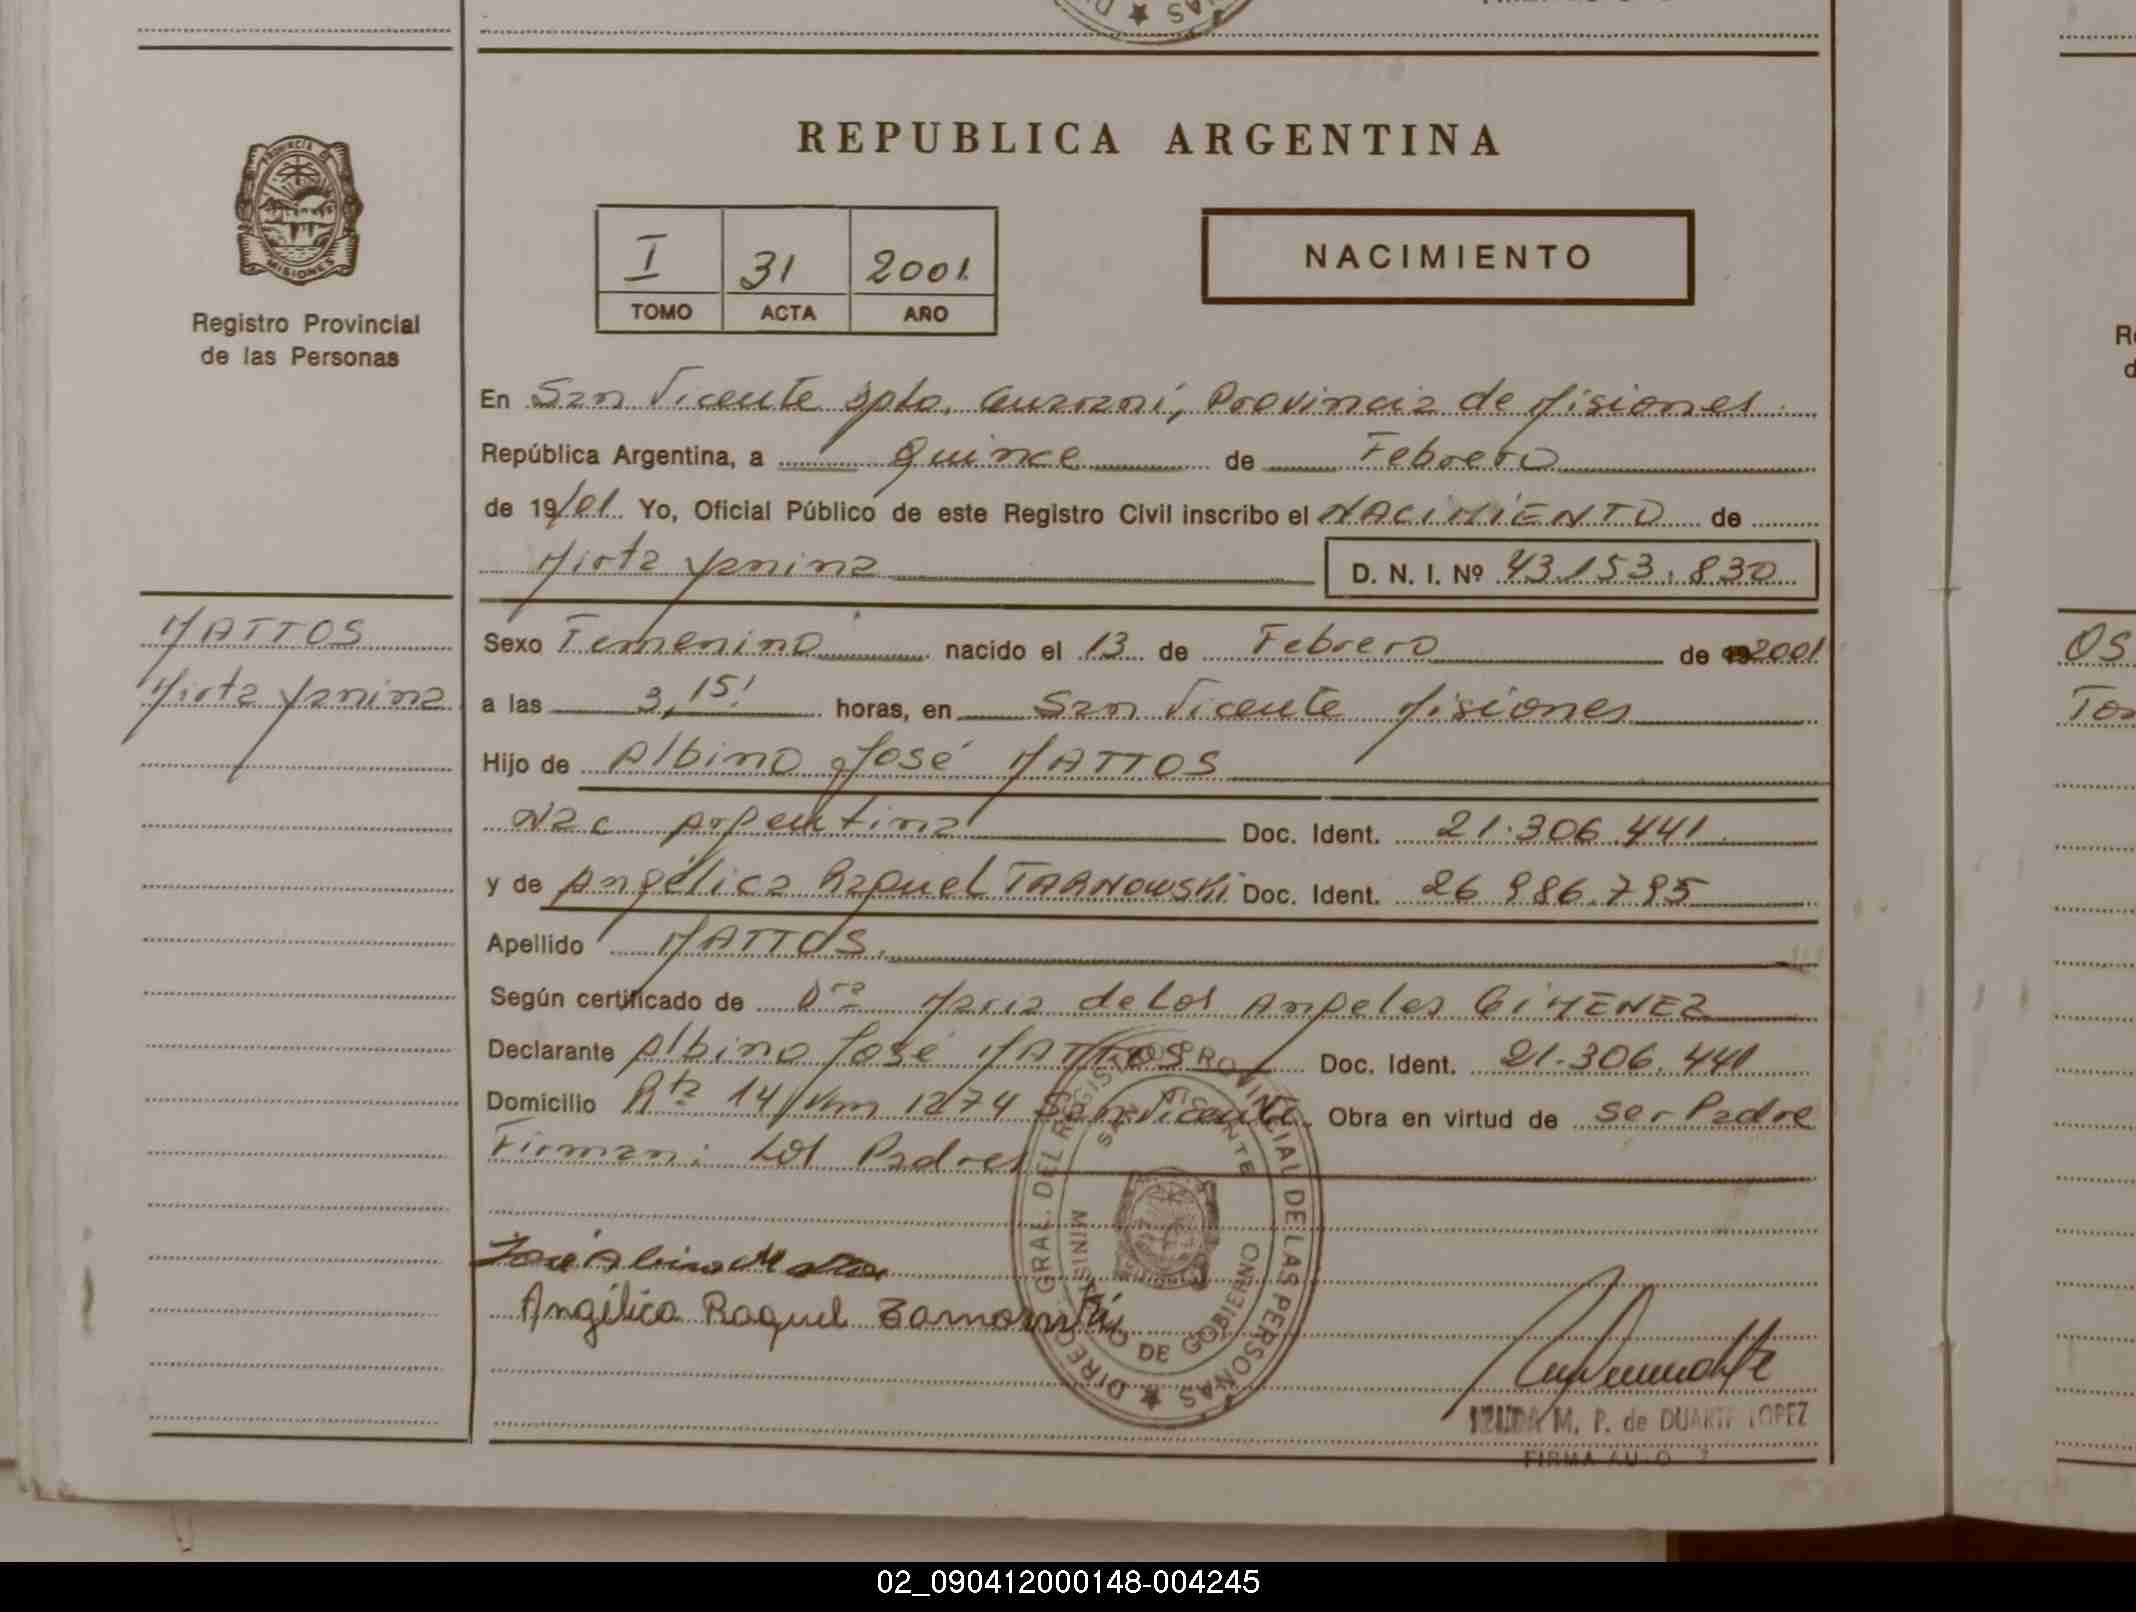 REPUBLICA ARGENTINA
PROVINCIA DE
MISIONES
Registro Provincial
de las Personas
I 31 2001
TOMO ACTA AÑO
NACIMIENTO
En San Vicente Dpto. Guaraní, Provincia de Misiones
República Argentina, a Quince de Febrero
de 19/01 Yo, Oficial Público de este Registro Civil inscribo el NACIMIENTO de
Mirta Yanina D. N. I. Nº 43.153.830
MATTOS
Mirta Yanina
Sexo Femenino nacido el 13 de Febrero de 2001
a las 3,15' horas, en San Vicente Misiones
Hijo de Albino José MATTOS
Nac Argentina Doc. Ident. 21.306.441
y de Angélica Raquel TARNOWSKI Doc. Ident. 26 986.795
Apellido MATTOS.
Según certificado de Dra Maria de Los Angeles GIMENEZ
Declarante Albino José MATTOS Doc. Ident. 21.306.441
Domicilio Rta 14/Km 1274 San Vicente Obra en virtud de ser Padre
Firman: Los Padres
José Albino Mattos
Angélica Raquel Tarnowski
DIREC. GRAL. DEL REGISTRO PROVINCIAL DE LAS PERSONAS
SAN VICENTE
MINISTERIO DE GOBIERNO
M. P. de DUARTE LOPEZ
OS
02_090412000148-004245